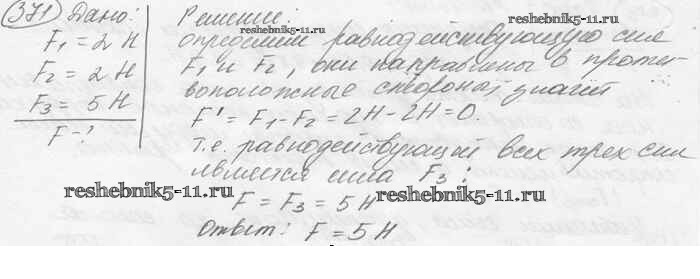 371 Дано:
F₁ = 2 Н
F₂ = 2 Н
F₃ = 5 Н
F - ?
Решение:
reshebnik5-11.ru
определим равнодействующую сил
F₁ и F₂, они направлены в проти-
воположные стороны, значит
F' = F₁ - F₂ = 2Н - 2Н = 0.
Т.е. равнодействующей всех трех сил
является сила F₃:
reshebnik5-11.ru
F = F₃ = 5 Н
reshebnik5-11.ru
Ответ: F = 5 Н